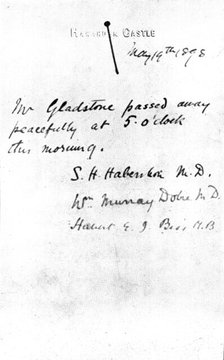 HAWARDEN CASTLE
May 19th 1898
Mr Gladstone passed away
peacefully at 5 o'clock
this morning.
S. H. Habershon M.D.
Wm Murray Dobie M.D.
Herbert E. J. Biss M.B